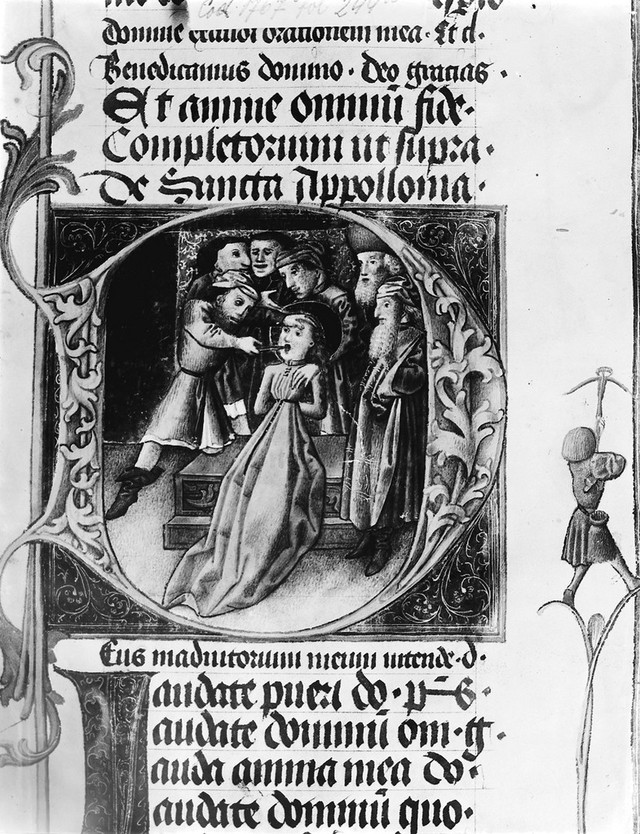 Cod. 1767 fol 244
Domine exaudi orationem mea. Et cl.
Benedicamus domino. Deo gracias.
Et anime omniū fide.
Completorium ut supra.
De Sancta Appollonia.
Eus in adiutorium meum intende. d.
audate pueri do. ps
audate dominū om. g.
auda anima mea do.
audate dominū quo.